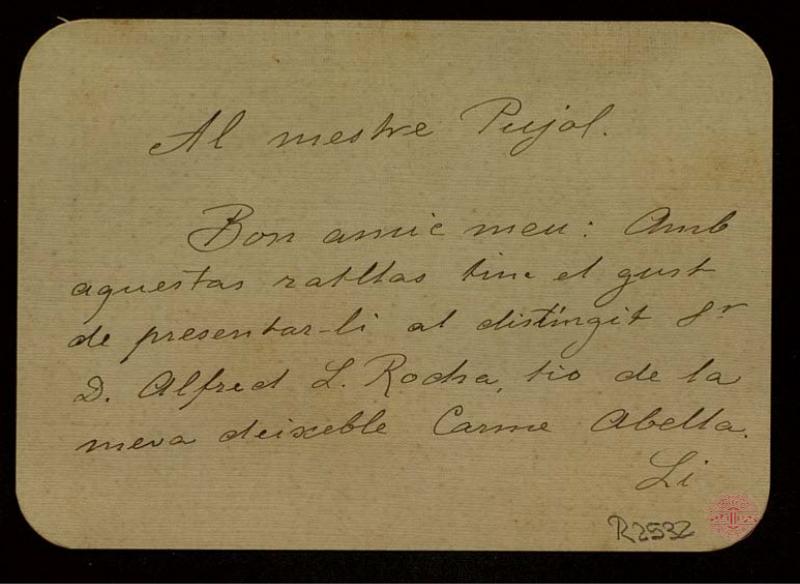 Al mestre Pujol.
Bon amic meu: Amb
aquestas ratllas tinc el gust
de presentar-li al distingit Sr
D. Alfred L. Rocha, tio de la
meva deixeble Carme Abella.
Li
R2532